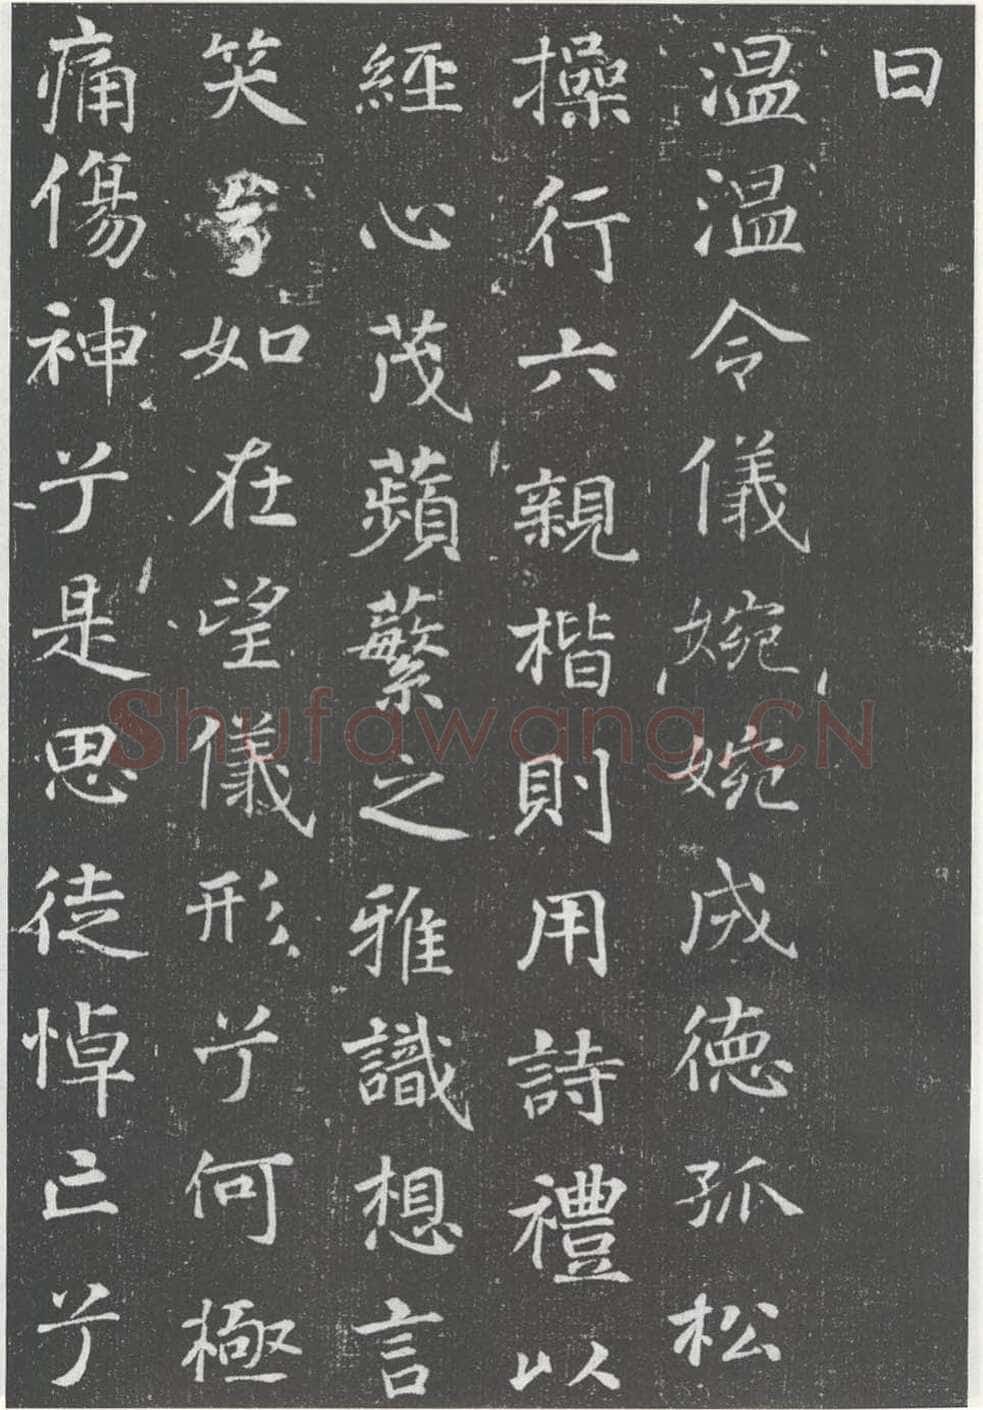 曰
温温令儀婉婉成德孤松
操行六親楷則用詩禮以
經心茂蘋蘩之雅識想言
笑兮如在望儀形兮何極
痛傷神兮是思徒悼亡兮
Shufawang.CN